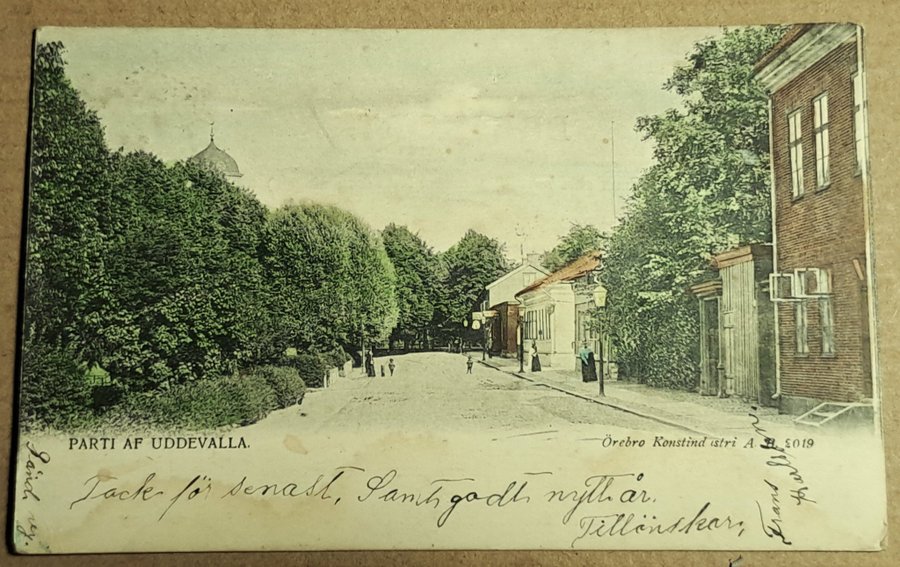 PARTI AF UDDEVALLA.
Örebro Konstindustri A. B. 2019
Tack för senast, Samt godt nytt år.
Tillönskar,
Frans